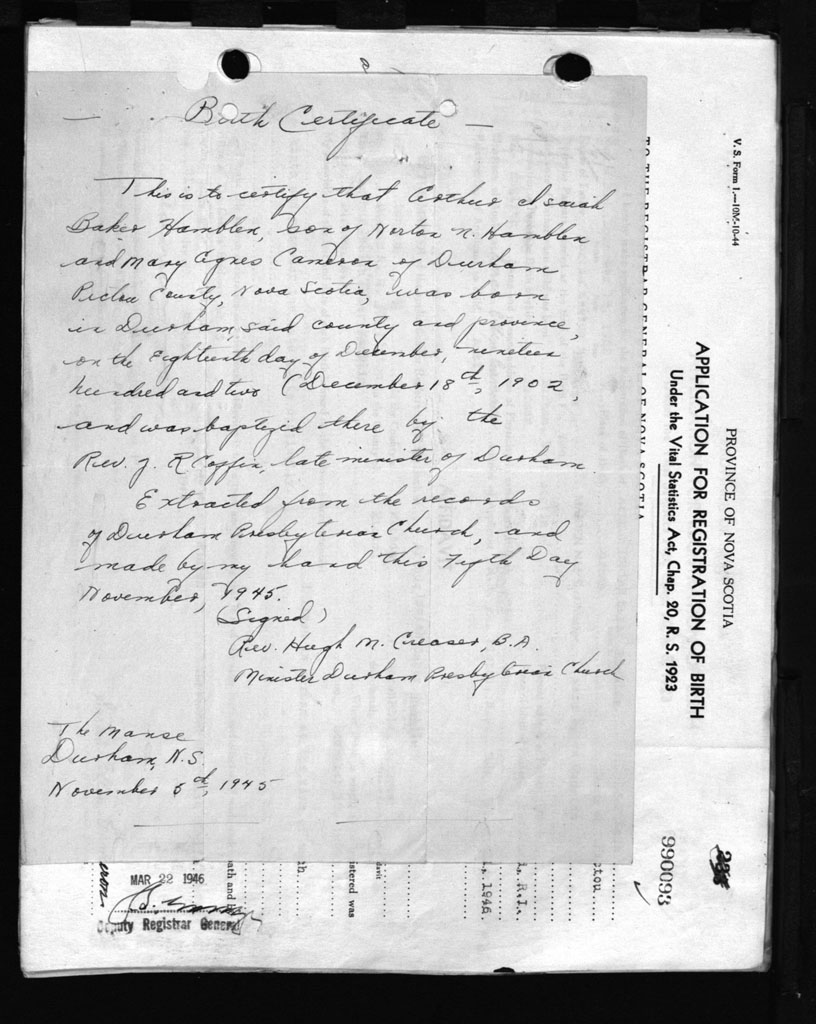 — Birth Certificate —
This is to certify that Arthur Isaiah
Baker Hamblen, son of Norton N. Hamblen
and Mary Agnes Cameron of Durham
Pictou County, Nova Scotia, was born
in Durham, said county and province,
on the Eighteenth day of December, nineteen
hundred and two (December 18th, 1902,
and was baptized there by the
Rev. J. R Coffin, late minister of Durham.
Extracted from the records
of Durham Presbyterian Church, and
made by my hand this Fifth Day
November, 1945.
(Signed)
Rev. Hugh M. Creaser, B.A.
Minister Durham Presbyterian Church
The Manse
Durham, N.S.
November 5th, 1945
MAR 22 1946
Deputy Registrar General
V. S. Form 1.—10M-10-44
PROVINCE OF NOVA SCOTIA
APPLICATION FOR REGISTRATION OF BIRTH
Under the Vital Statistics Act, Chap. 20, R. S. 1923
TO THE REGISTRAR GENERAL OF NOVA SCOTIA
990093
ctou
R.I.
1946.
istered was
davit
ath and
eron